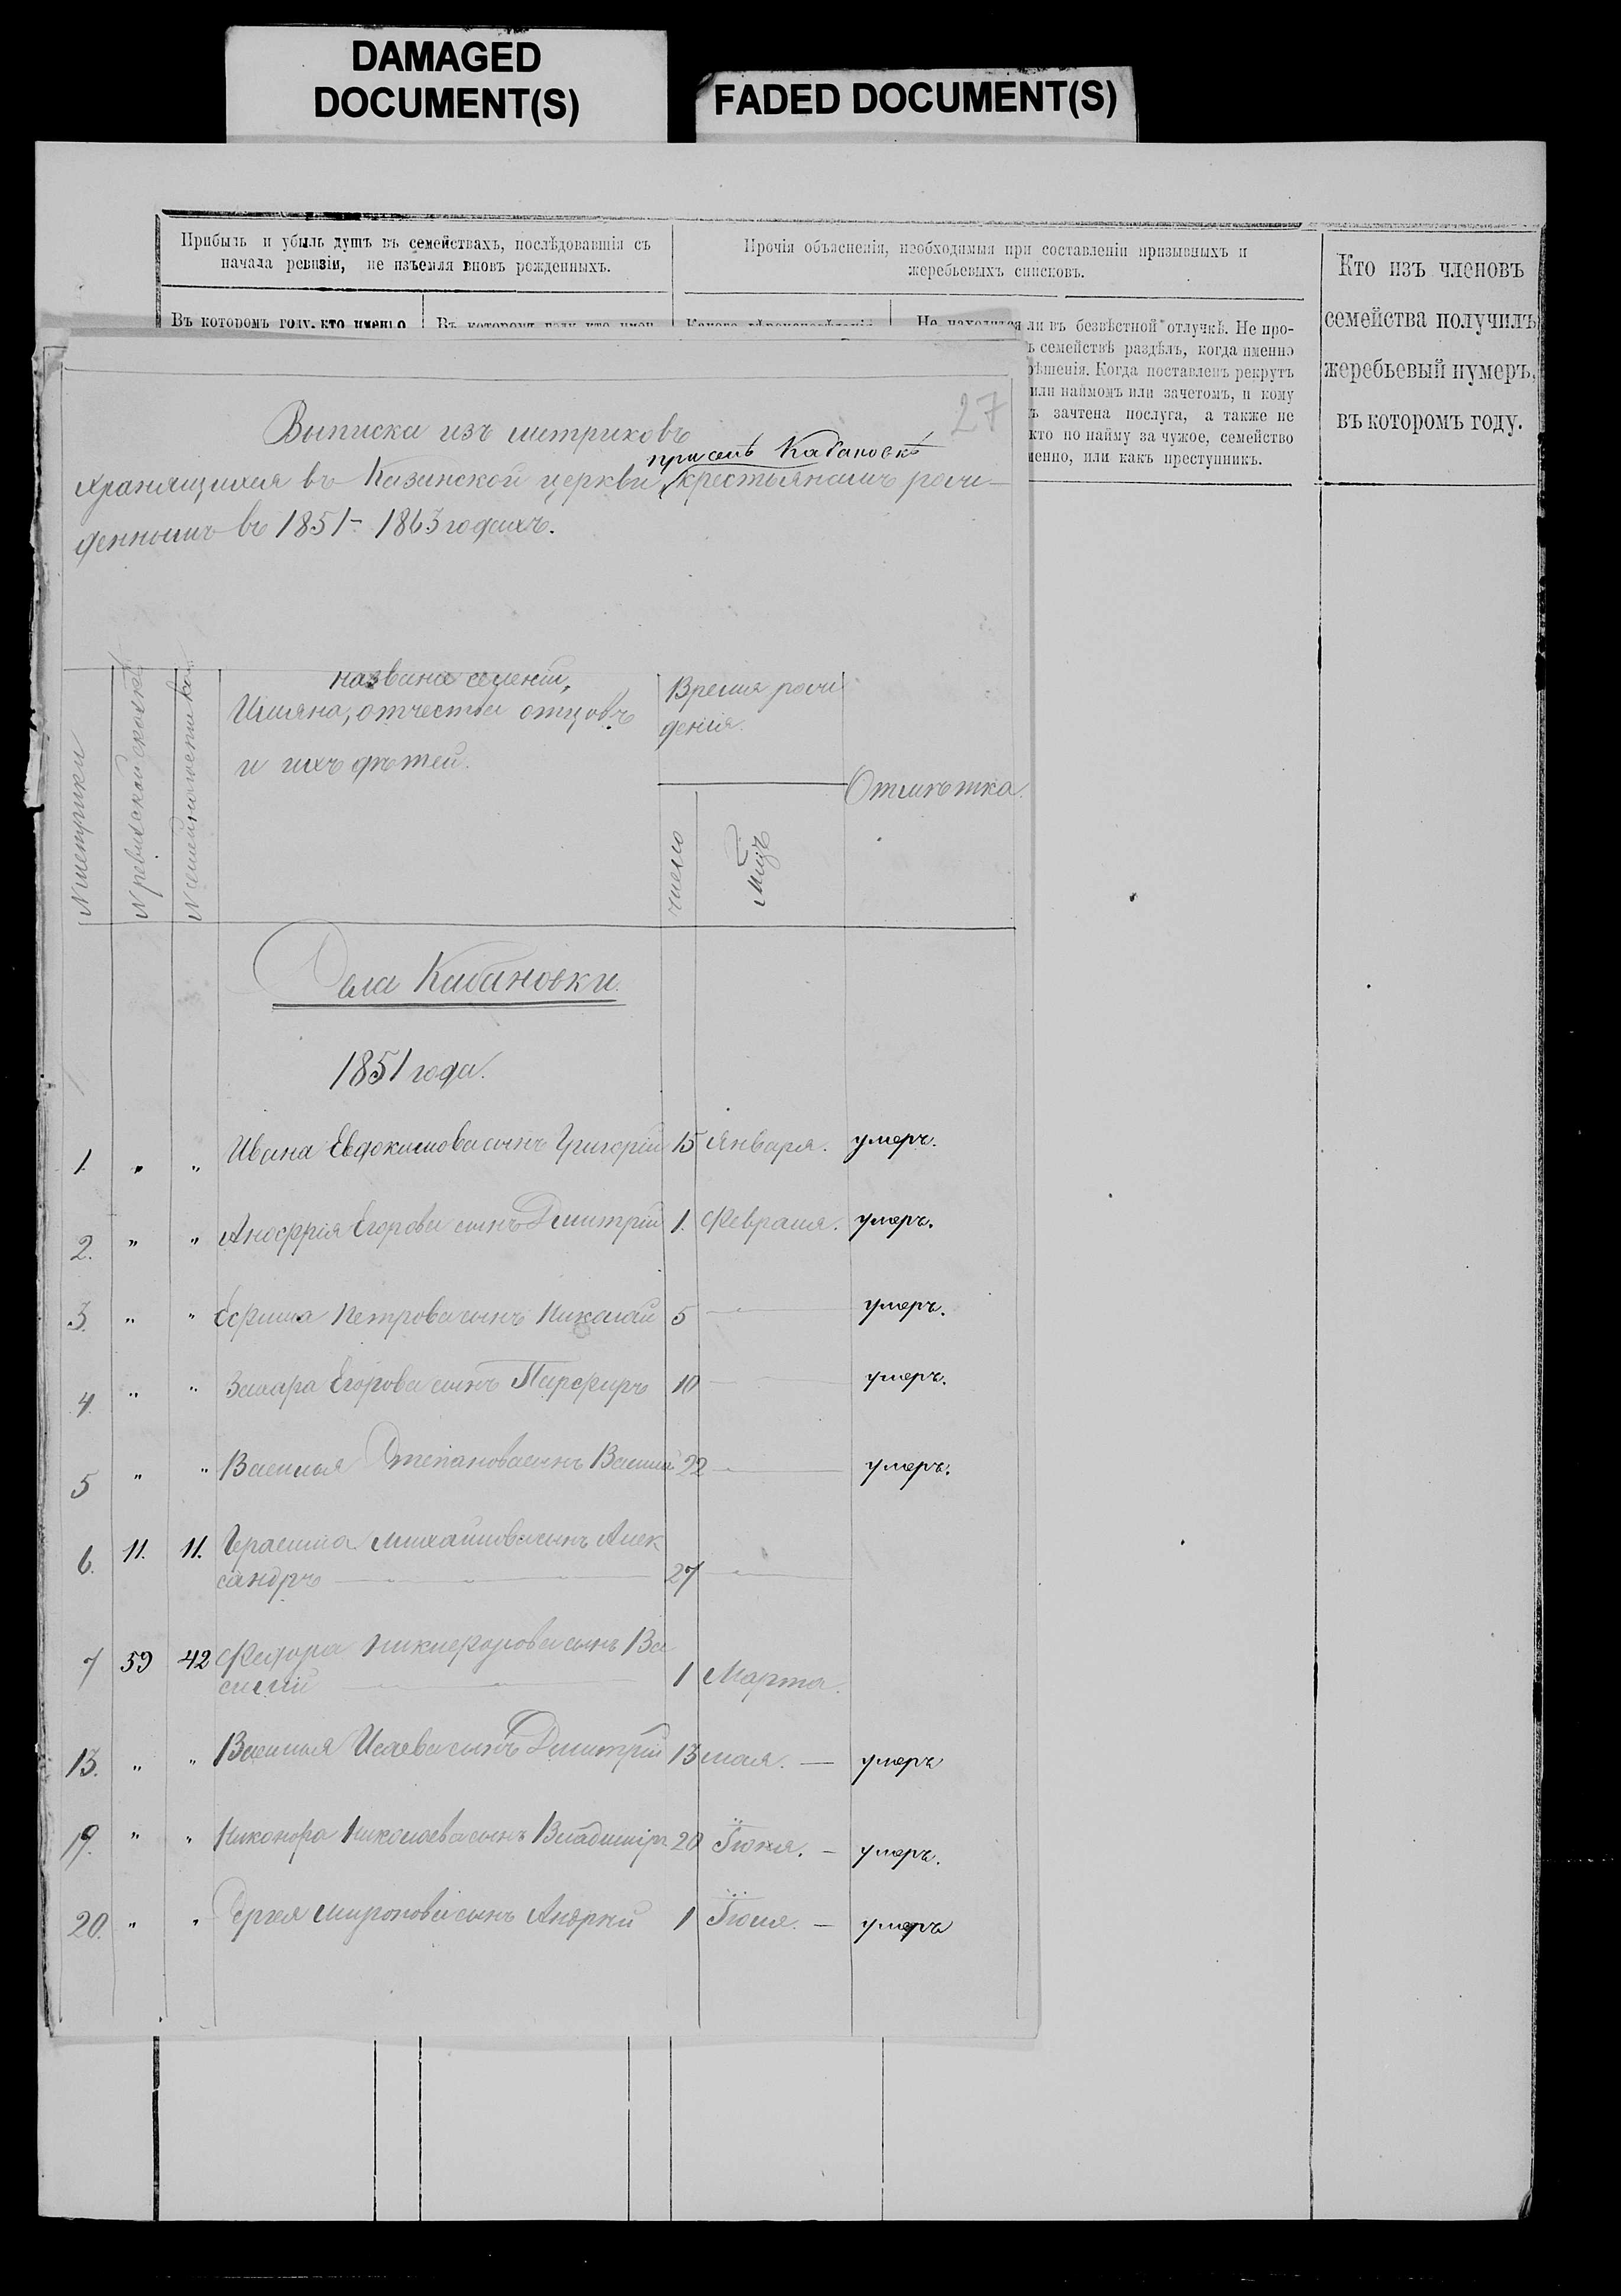 DAMAGED
DOCUMENT(S)
FADED DOCUMENT(S)
Прибыль и убыль душъ въ семействахъ, послѣдовавшія съ
начала ревизіи, не изъемля вновь рожденныхъ.
Прочія объясненія, необходимыя при составленіи призывныхъ и
жеребьевыхъ списковъ.
Кто изъ членовъ
семейства получилъ
жеребьевый нумеръ,
въ которомъ году.
Въ которомъ году, кто именно
Въ которомъ году кто имен
Какого вѣроисповѣданія
Не находится ли въ безвѣстной отлучкѣ. Не про-
ъ семействѣ раздѣлъ, когда именно
рѣшенія. Когда поставленъ рекрутъ
или наймомъ или зачетомъ, и кому
ъ зачтена послуга, а также не
кто по найму за чужое, семейство
менно, или какъ преступникъ.
27
Выписка изъ митриковъ
при селѣ Кабановкѣ
хранящихся въ Казинской церкви крестьянамъ рож-
деннымъ въ 1851-1863 годахъ.
N метрики
N ревизской сказки
N семейнаго
название селеній,
Имяна, отчества отцовъ
и ихъ дѣтей.
Время рож
денія.
число
Мцъ
Отмѣтка.
Села Кабановки.
1851 года.
1. " " Ивана Евдокимова сынъ Григорій 15 Января. умеръ.
2. " " Аноффрія Егорова сынъ Дмитрій 1. Февраля. умеръ.
3. " " Ефима Петрова сынъ Николай 5 — " — умеръ.
4. " " Захара Егорова сынъ Парфиръ 10 — умеръ.
5 " " Василья Степанова сынъ Васил. 22 — " — умеръ.
6. 11. 11. Герасима Михайлова сынъ Алек
сандръ — " — " — " — 27 — " —
7 59 42 Федора Никиефорова сынъ Ва
силій — " — 1 Марта.
13. " " Василья Исаева сынъ Дмитрій 13 мая. — умеръ
19. " " Никонора Николаева сынъ Владиміръ 20 Іюня. — умеръ.
20. " " Сергея Миронова сынъ Андрей 1 Іюля. — умеръ